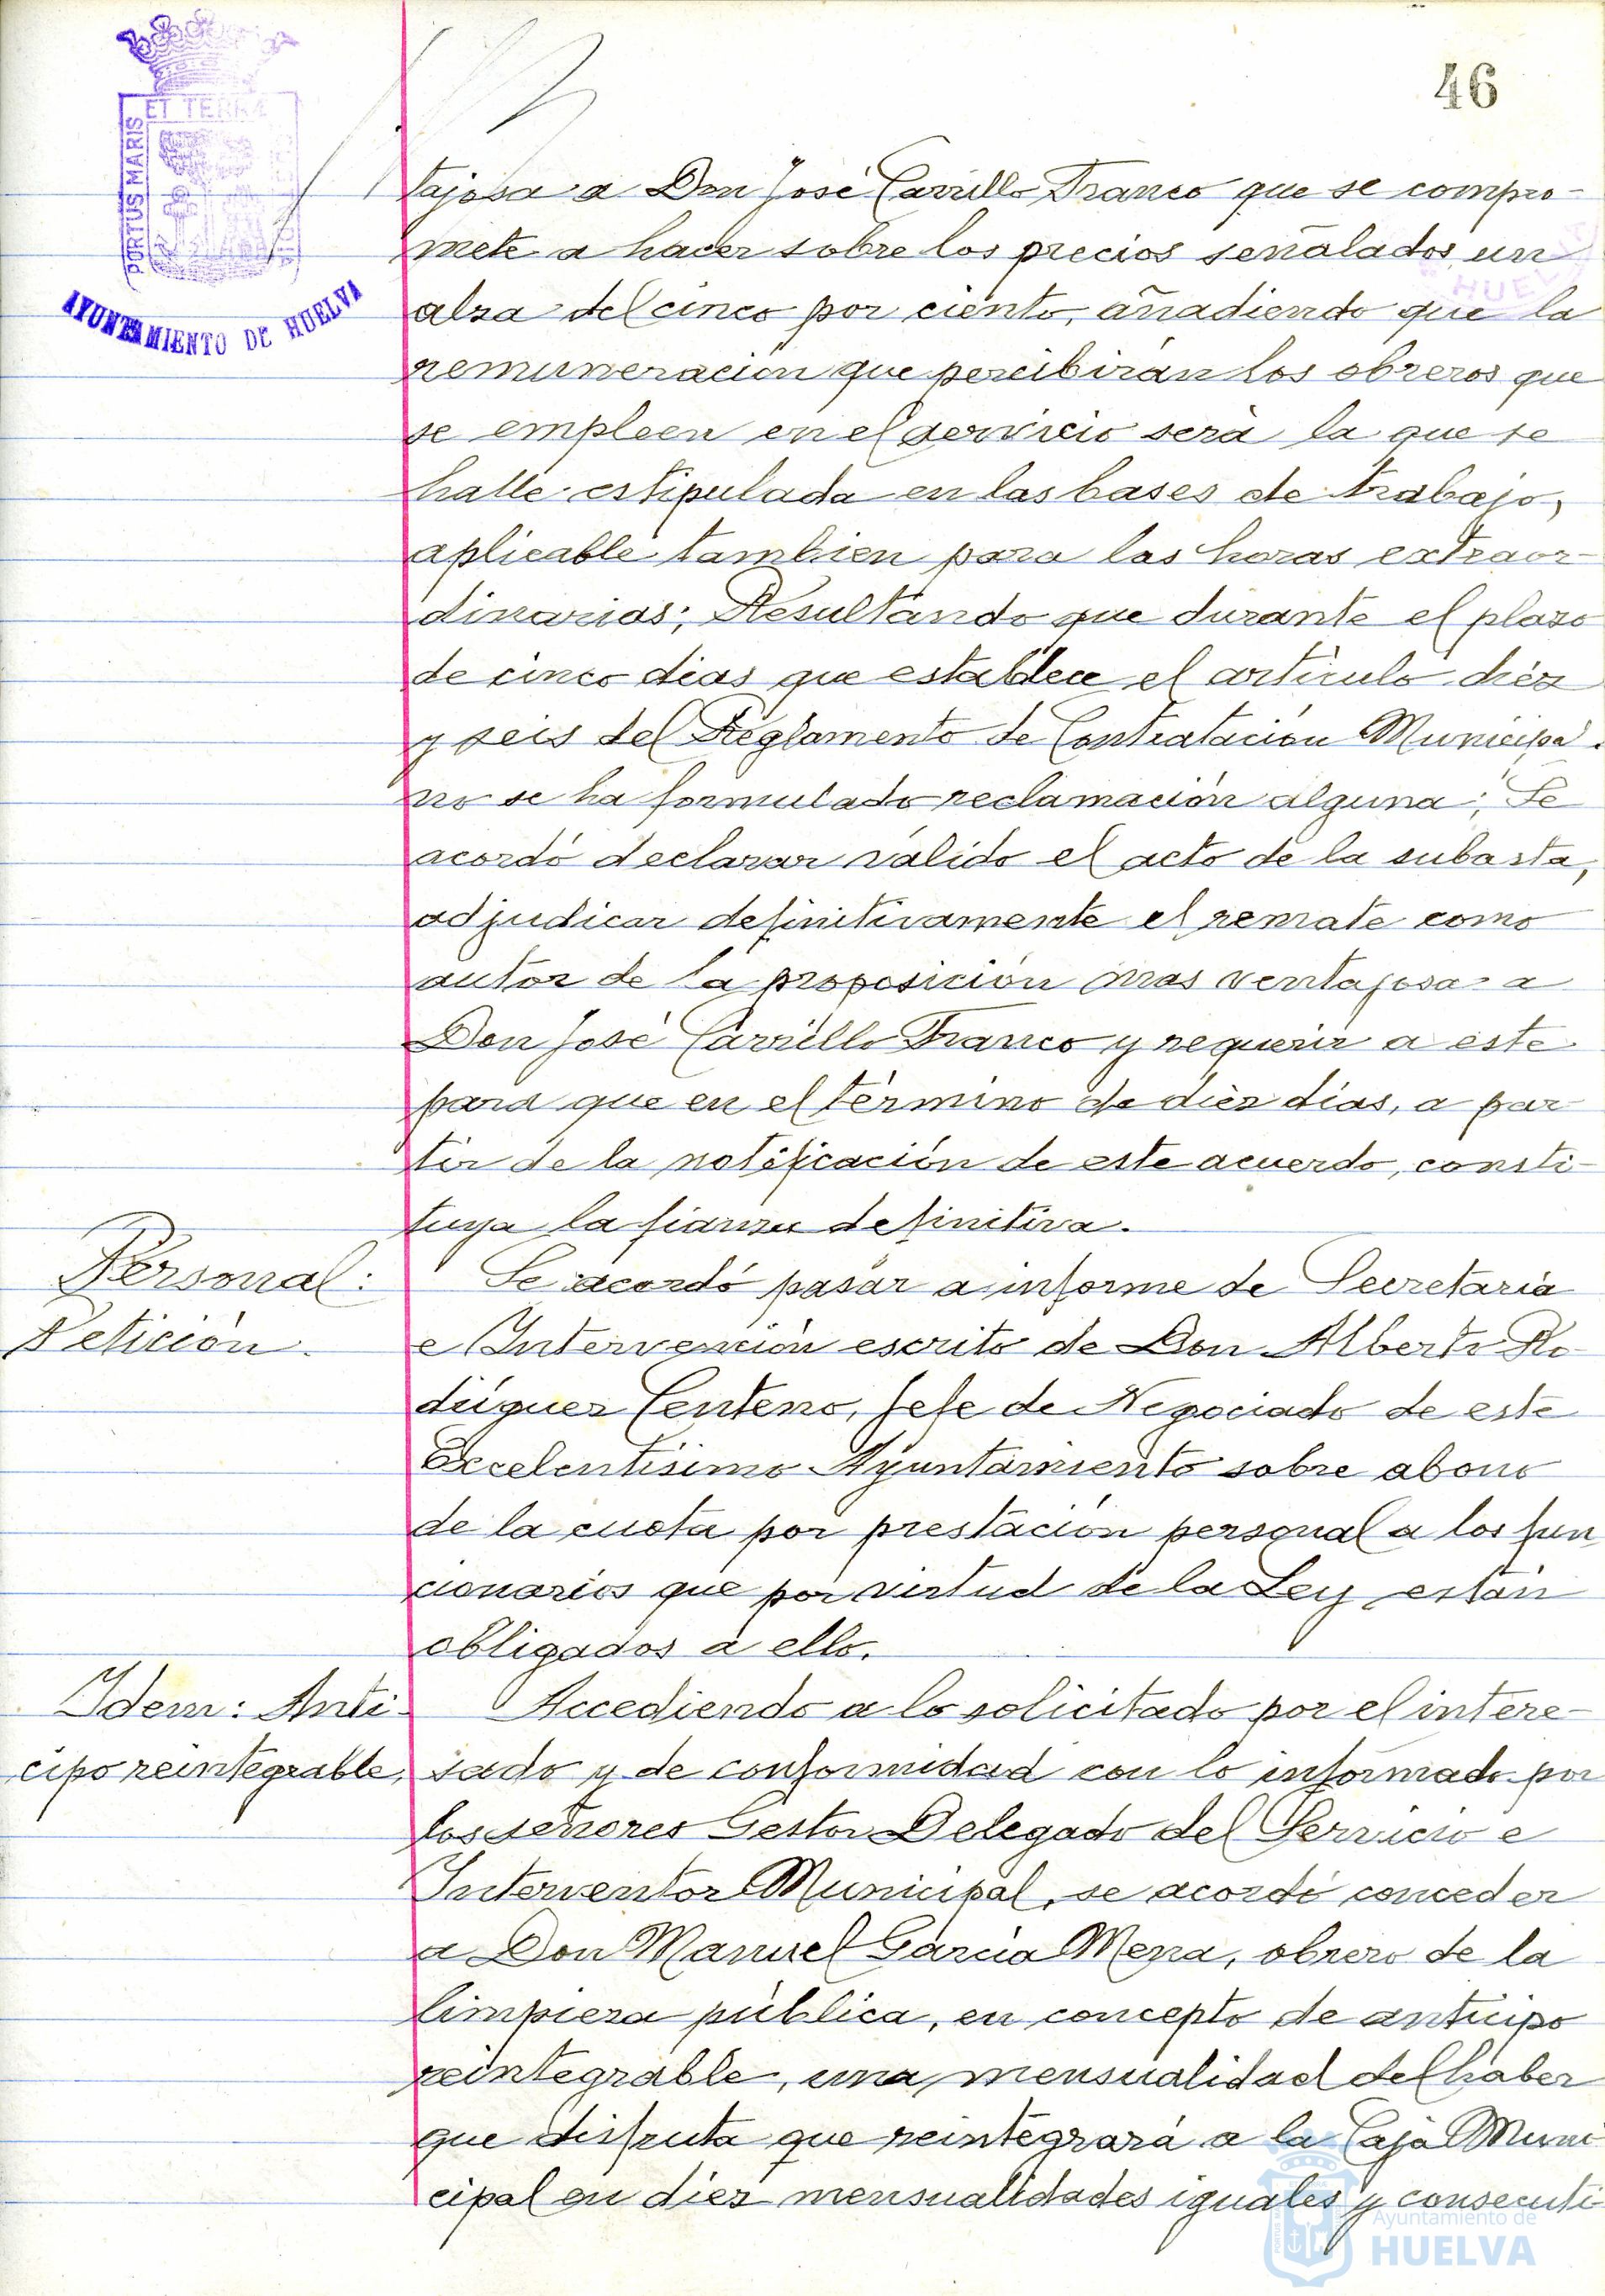 46
PORTUS MARIS
ET TERRÆ
AYUNTAMIENTO DE HUELVA
tajosa a Don José Carrillo Franco que se compro-
mete a hacer sobre los precios señalados un
alza del cinco por ciento, añadiendo que la
remuneración que percibirán los obreros que
se empleen en el servicio será la que se
halle estipulada en las bases de trabajo,
aplicable tambien para las horas extraor-
dinarias; Resultando que durante el plazo
de cinco dias que establece el artículo diéz
y seis del Reglamento de Contratación Municipal
no se ha formulado reclamación alguna; Se
acordó declarar válido el acto de la subasta,
adjudicar definitivamente el remate como
autor de la proposición mas ventajosa a
Don José Carrillo Franco y requerir a este
para que en el término de diéz dias, a par
tir de la notificación de este acuerdo, consti-
tuya la fianza definitiva.
Personal:
Petición.
Se acordó pasar a informe de Secretaría
e Intervención escrito de Don Alberto Ro-
dríguez Centeno, Jefe de Negociado de este
Excelentísimo Ayuntamiento sobre abono
de la cuota por prestación personal a los fun
cionarios que por virtud de la Ley están
obligados a ello.
Idem: Anti-
cipo reintegrable.
Accediendo a lo solicitado por el intere-
sado y de conformidad con lo informado por
los señores Gestor Delegado del Servicio e
Interventor Municipal, se acordó conceder
a Don Manuel García Mena, obrero de la
limpieza pública, en concepto de anticipo
reintegrable, una mensualidad del haber
que disfruta que reintegrará a la Caja Muni
cipal en diez mensualidades iguales y consecuti-
Ayuntamiento de
HUELVA